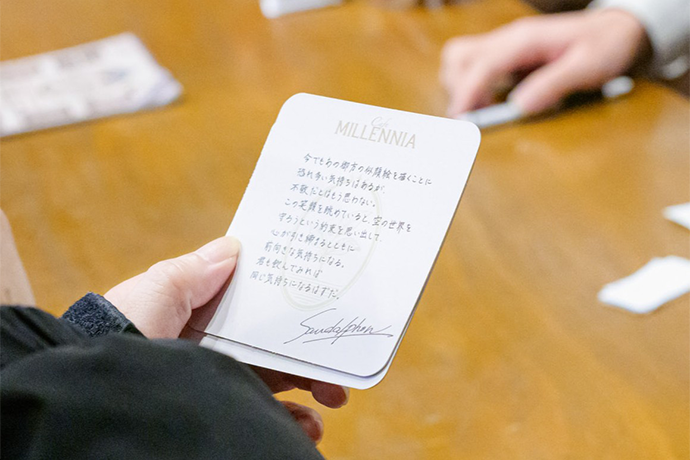 Café
MILLENNIA
今でもあの御方の似顔絵を描くことに
恐れ多い気持ちはあるが、
不敬だとはもう思わない。
この笑顔を眺めていると、空の世界を
守ろうという約束を思い出して、
心が引き締まるとともに
前向きな気持ちになる。
君も飲んでみれば
同じ気持ちになるはずだ。
Sandalphon